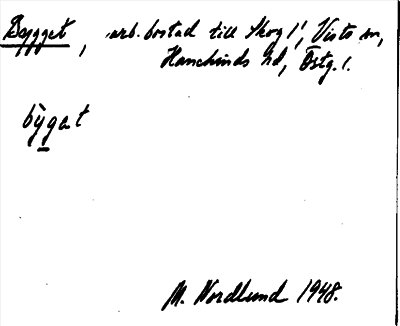 Bygget, arb. bostad till Skog 1!, Vists sn,
Hanekinds hd, Östg. l.
bỳgat
M. Nordlund 1948.